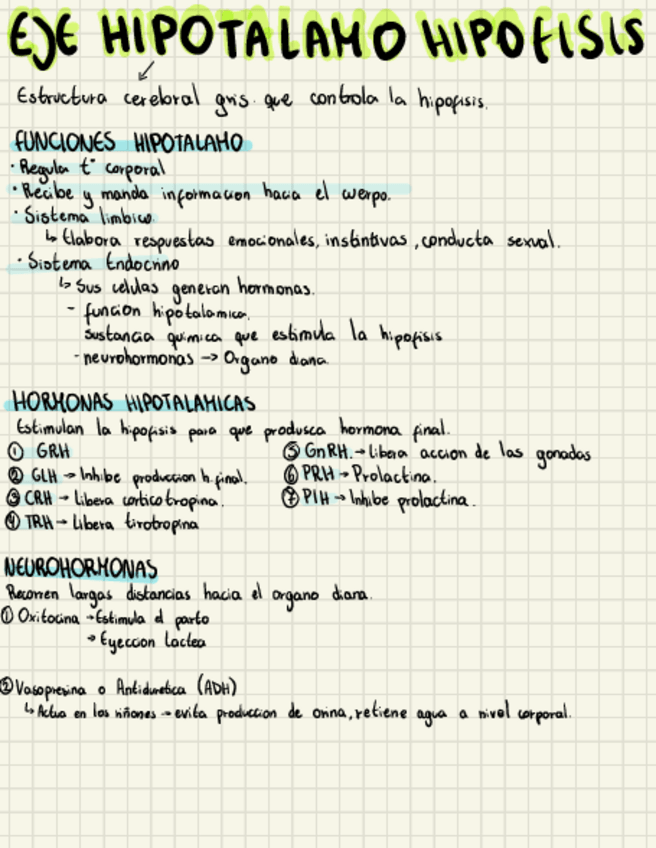 EJE HIPOTALAMO HIPOFISIS
Estructura cerebral gris que controla la hipofisis.
FUNCIONES HIPOTALAMO
· Regula t° corporal
· Recibe y manda informacion hacia el cuerpo.
· Sistema limbico
↳ Elabora respuestas emocionales, instintivas, conducta sexual.
· Sistema Endocrino
↳ Sus celulas generan hormonas.
- funcion hipotalamica.
sustancia quimica que estimula la hipofisis
- neurohormonas -> Organo diana.
HORMONAS HIPOTALAMICAS
Estimulan la hipofisis para que produsca hormona final.
① GRH
② GLH → Inhibe produccion h. final.
③ CRH → Libera corticotropina.
④ TRH → Libera tirotropina
⑤ GnRH. → Libera accion de las gonadas
⑥ PRH → Prolactina.
⑦ PIH → Inhibe prolactina.
NEUROHORMONAS
Recorren largas distancias hacia el organo diana.
① Oxitocina → Estimula el parto
→ Eyeccion Lactea
② Vasopresina o Antidiuretica (ADH)
↳ Actua en los riñones → evita produccion de orina, retiene agua a nivel corporal.